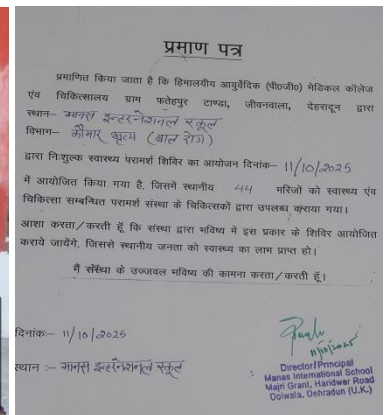 प्रमाण पत्र
प्रमाणित किया जाता है कि हिमालयीय आयुर्वेदिक (पी०जी०) मेडिकल कॉलेज
एंव चिकित्सालय ग्राम फतेहपुर टाण्डा, जीवनवाला, देहरादून द्वारा
स्थान– मानस इन्टरनेशनल स्कूल
विभाग– कौमार भृत्य (बाल रोग)
द्वारा नि:शुल्क स्वास्थ्य परामर्श शिविर का आयोजन दिनांक– 11/10/2025
में आयोजित किया गया है, जिसमें स्थानीय 44 मरिजों को स्वास्थ्य एंव
चिकित्सा सम्बन्धित परामर्श संस्था के चिकित्सकों द्वारा उपलब्ध कराया गया।
आशा करता/करती हूँ कि संस्था द्वारा भविष्य में इस प्रकार के शिविर आयोजित
कराये जायेंगे, जिससे स्थानीय जनता को स्वास्थ्य का लाभ प्राप्त हो।
मैं संस्था के उज्जवल भविष्य की कामना करता/करती हूँ।
दिनांक:– 11/10/2025
11/10/2025
स्थान :– मानस इन्टरनेशनल स्कूल
Director/Principal
Manas International School
Majri Grant, Haridwar Road
Doiwala, Dehradun (U.K.)